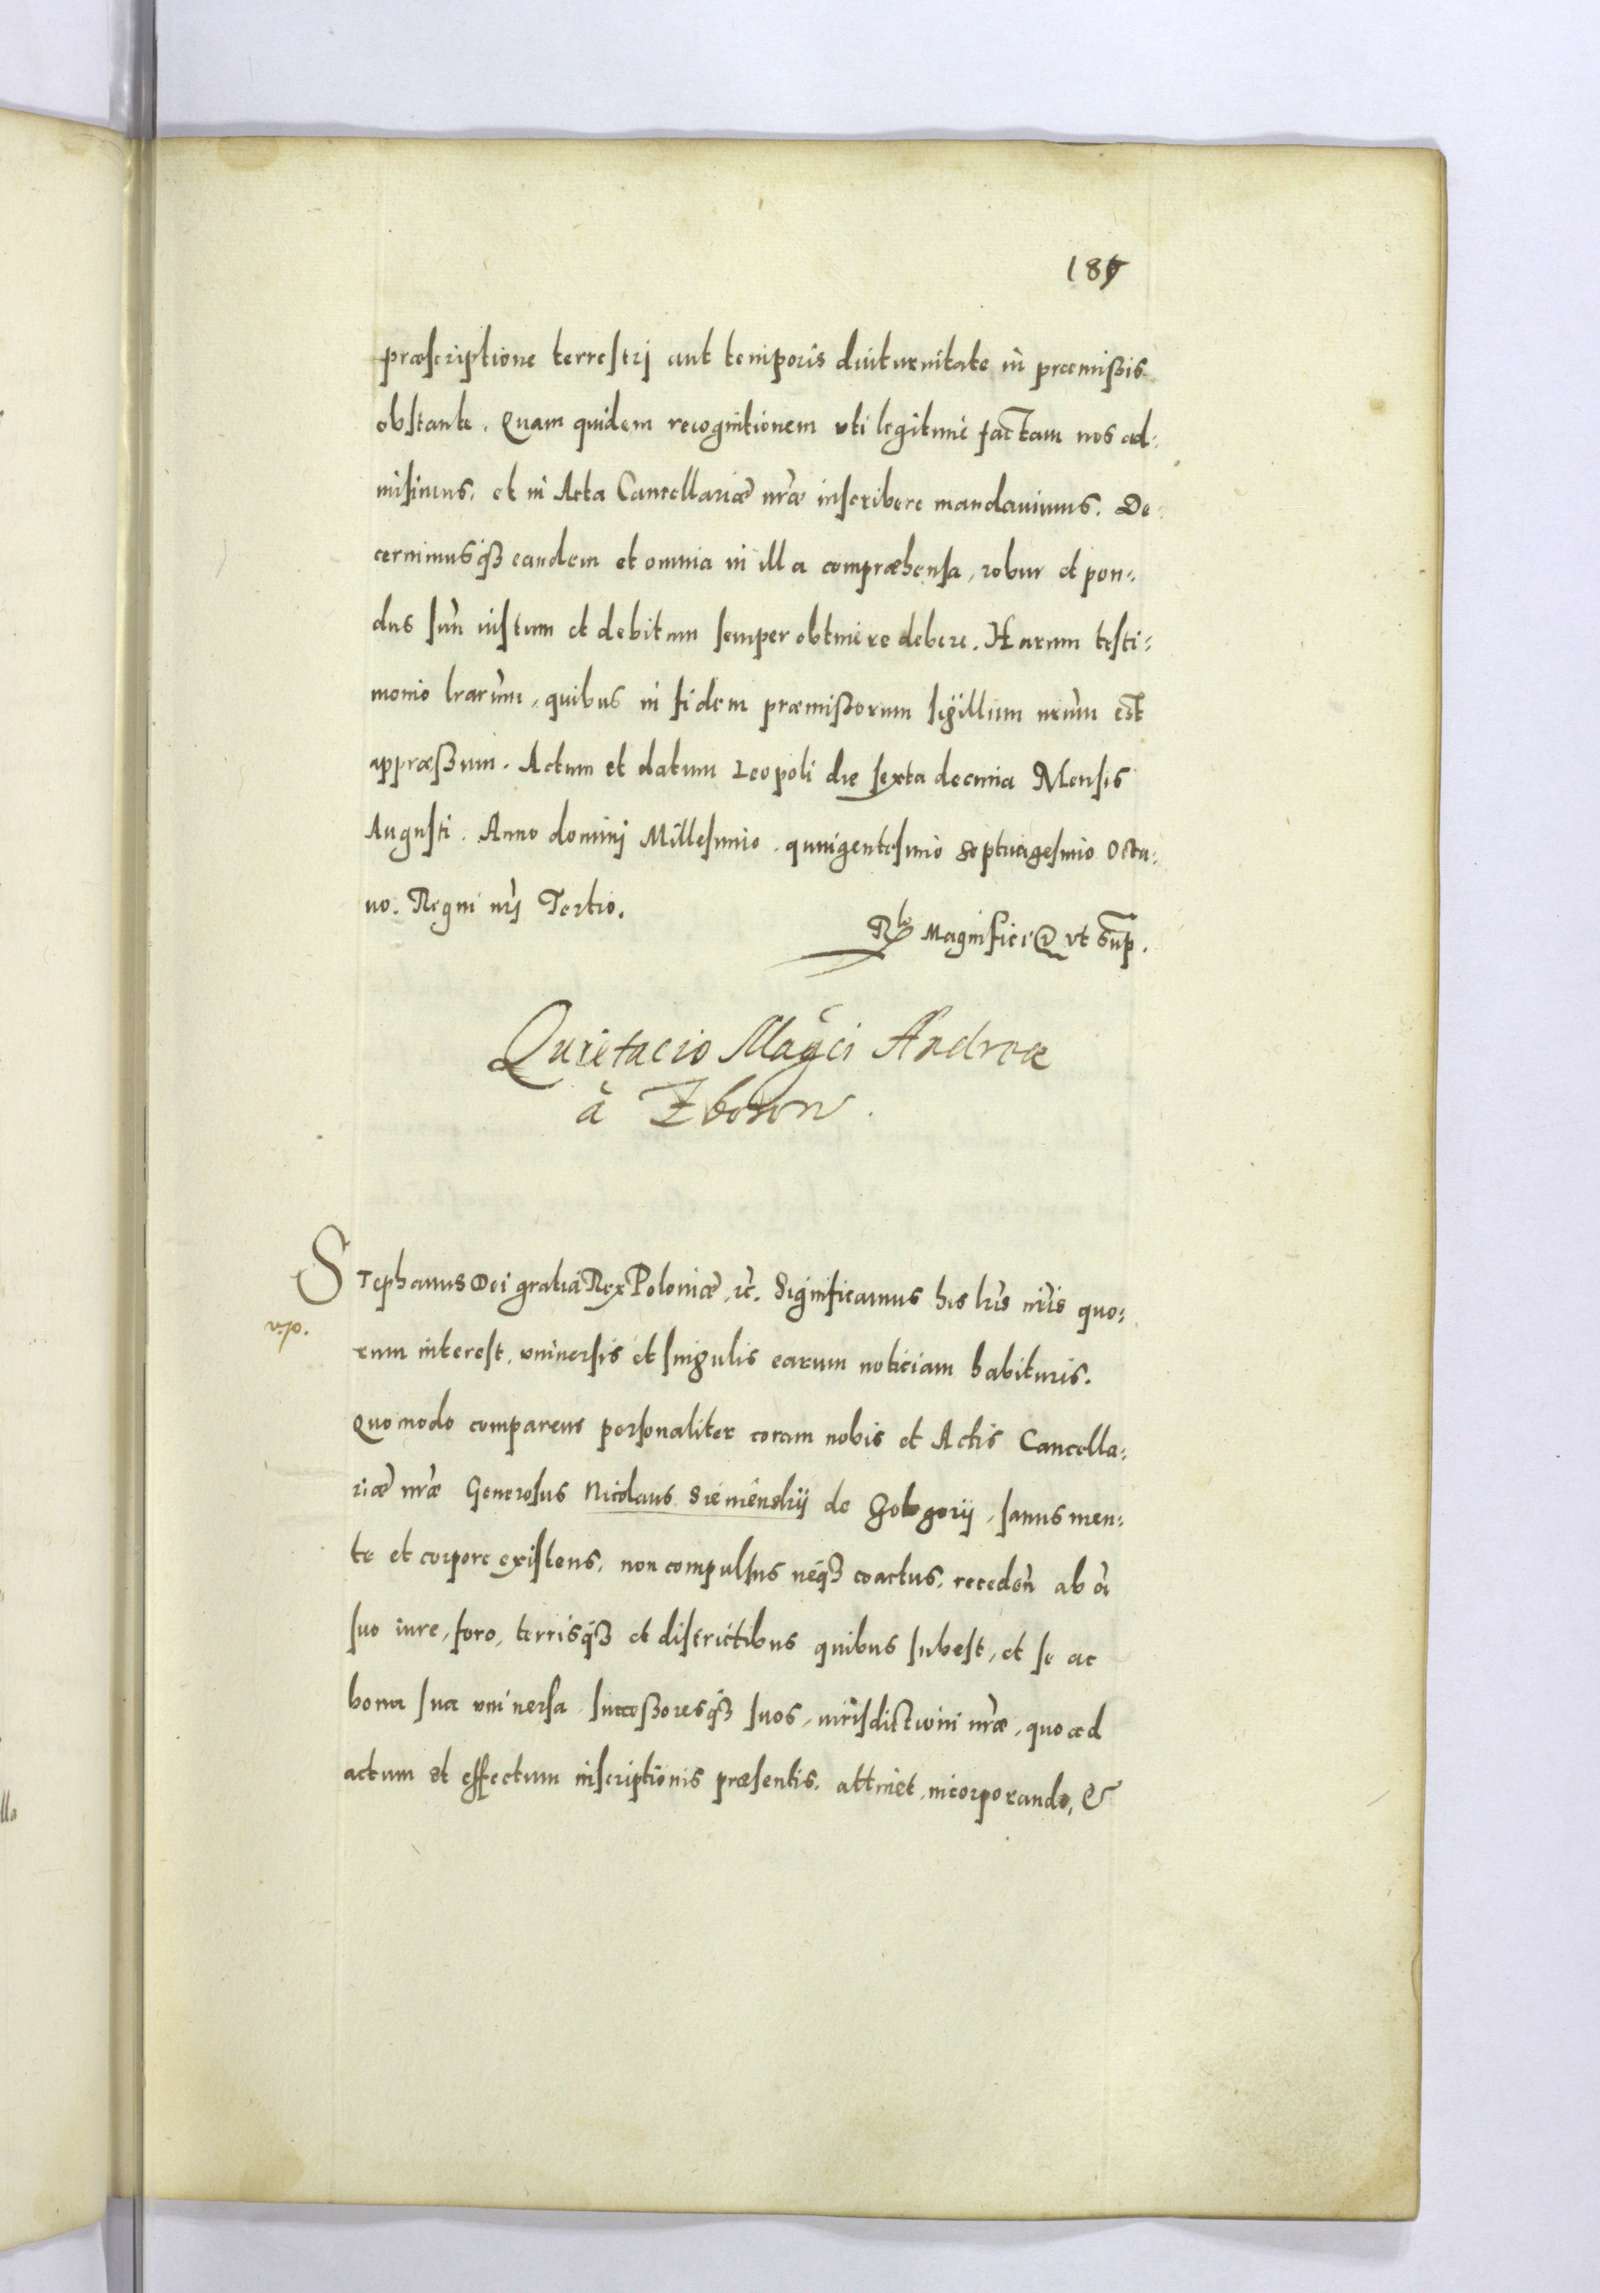 præscriptione terrestrj aut temporis diuturnitate in præmißis
obstante. Quam quidem recognitionem uti legitime factam nos ad:
misimus, et in Acta Cancellariæ nr̃æ inscribere mandauimus. De:
cernimusq́ꝫ eandem et omnia in illa compræhensa, robur et pon:
dus suũ iustum et debitum semper obtinere debere. Harum testi:
monio lrarũm, quibus in fidem præmißorum sigillum nrũm est
appræßum. Actum et datum Leopoli die sexta decima Mensis
Augusti. Anno dominj Millesimo quingentesimo septuagesimo Octa:
uo. Regni nr̃j Tertio.
Rlo Magnifici @ ut sup̃.
Quietacio Mag̃ci Andreæ
à Zborow.
Stephanus Dei gratia Rex Poloniæ, ꝛc̃. Significamus his lrĩs nrĩs quo:
rum interest, uniuersis et singulis earum noticiam habituris.
Quomodo comparens personaliter coram nobis et Actis Cancella:
riæ nr̃æ Generosus Nicolaus Sieniensky de Gologory, sanus men:
te et corpore existens, non compulsus neq́ꝫ coactus, recedeñ ab oĩ
suo iure, foro, terrisq́ꝫ et districtibus quibus subest, et se ac
bona sua uniuersa successoresq́ꝫ suos, iurisdictioni nr̃æ, quo ad
actum et effectum inscriptionis præsentis, attinet, incorporando, &